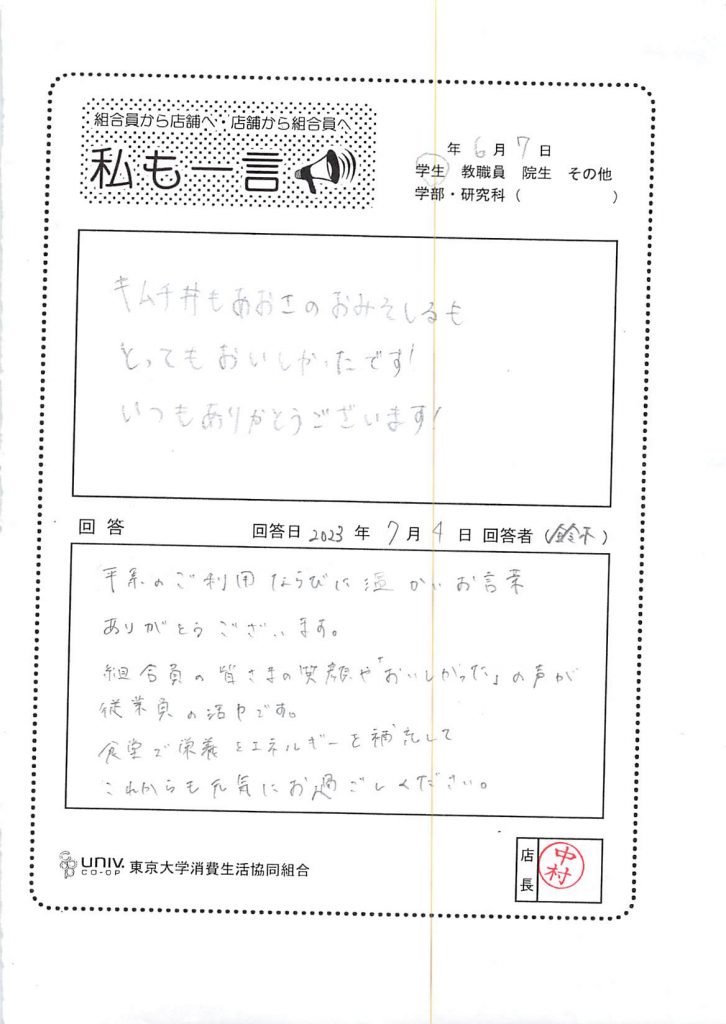 組合員から店舗へ・店舗から組合員へ
私も一言
年 6月 7日
学生 教職員 院生 その他
学部・研究科( )
キムチ丼もあおさのおみそしるも
とってもおいしかったです!
いつもありがとうございます!
回答 回答日 2023年 7月 4日 回答者(鈴木)
平素のご利用ならびに温かいお言葉
ありがとうございます。
組合員の皆さまの笑顔や「おいしかった」の声が
従業員の活力です。
食堂で栄養とエネルギーを補充して
これからも元気にお過ごしください。
CO-OP UNIV. CO-OP 東京大学消費生活協同組合
店長 中村